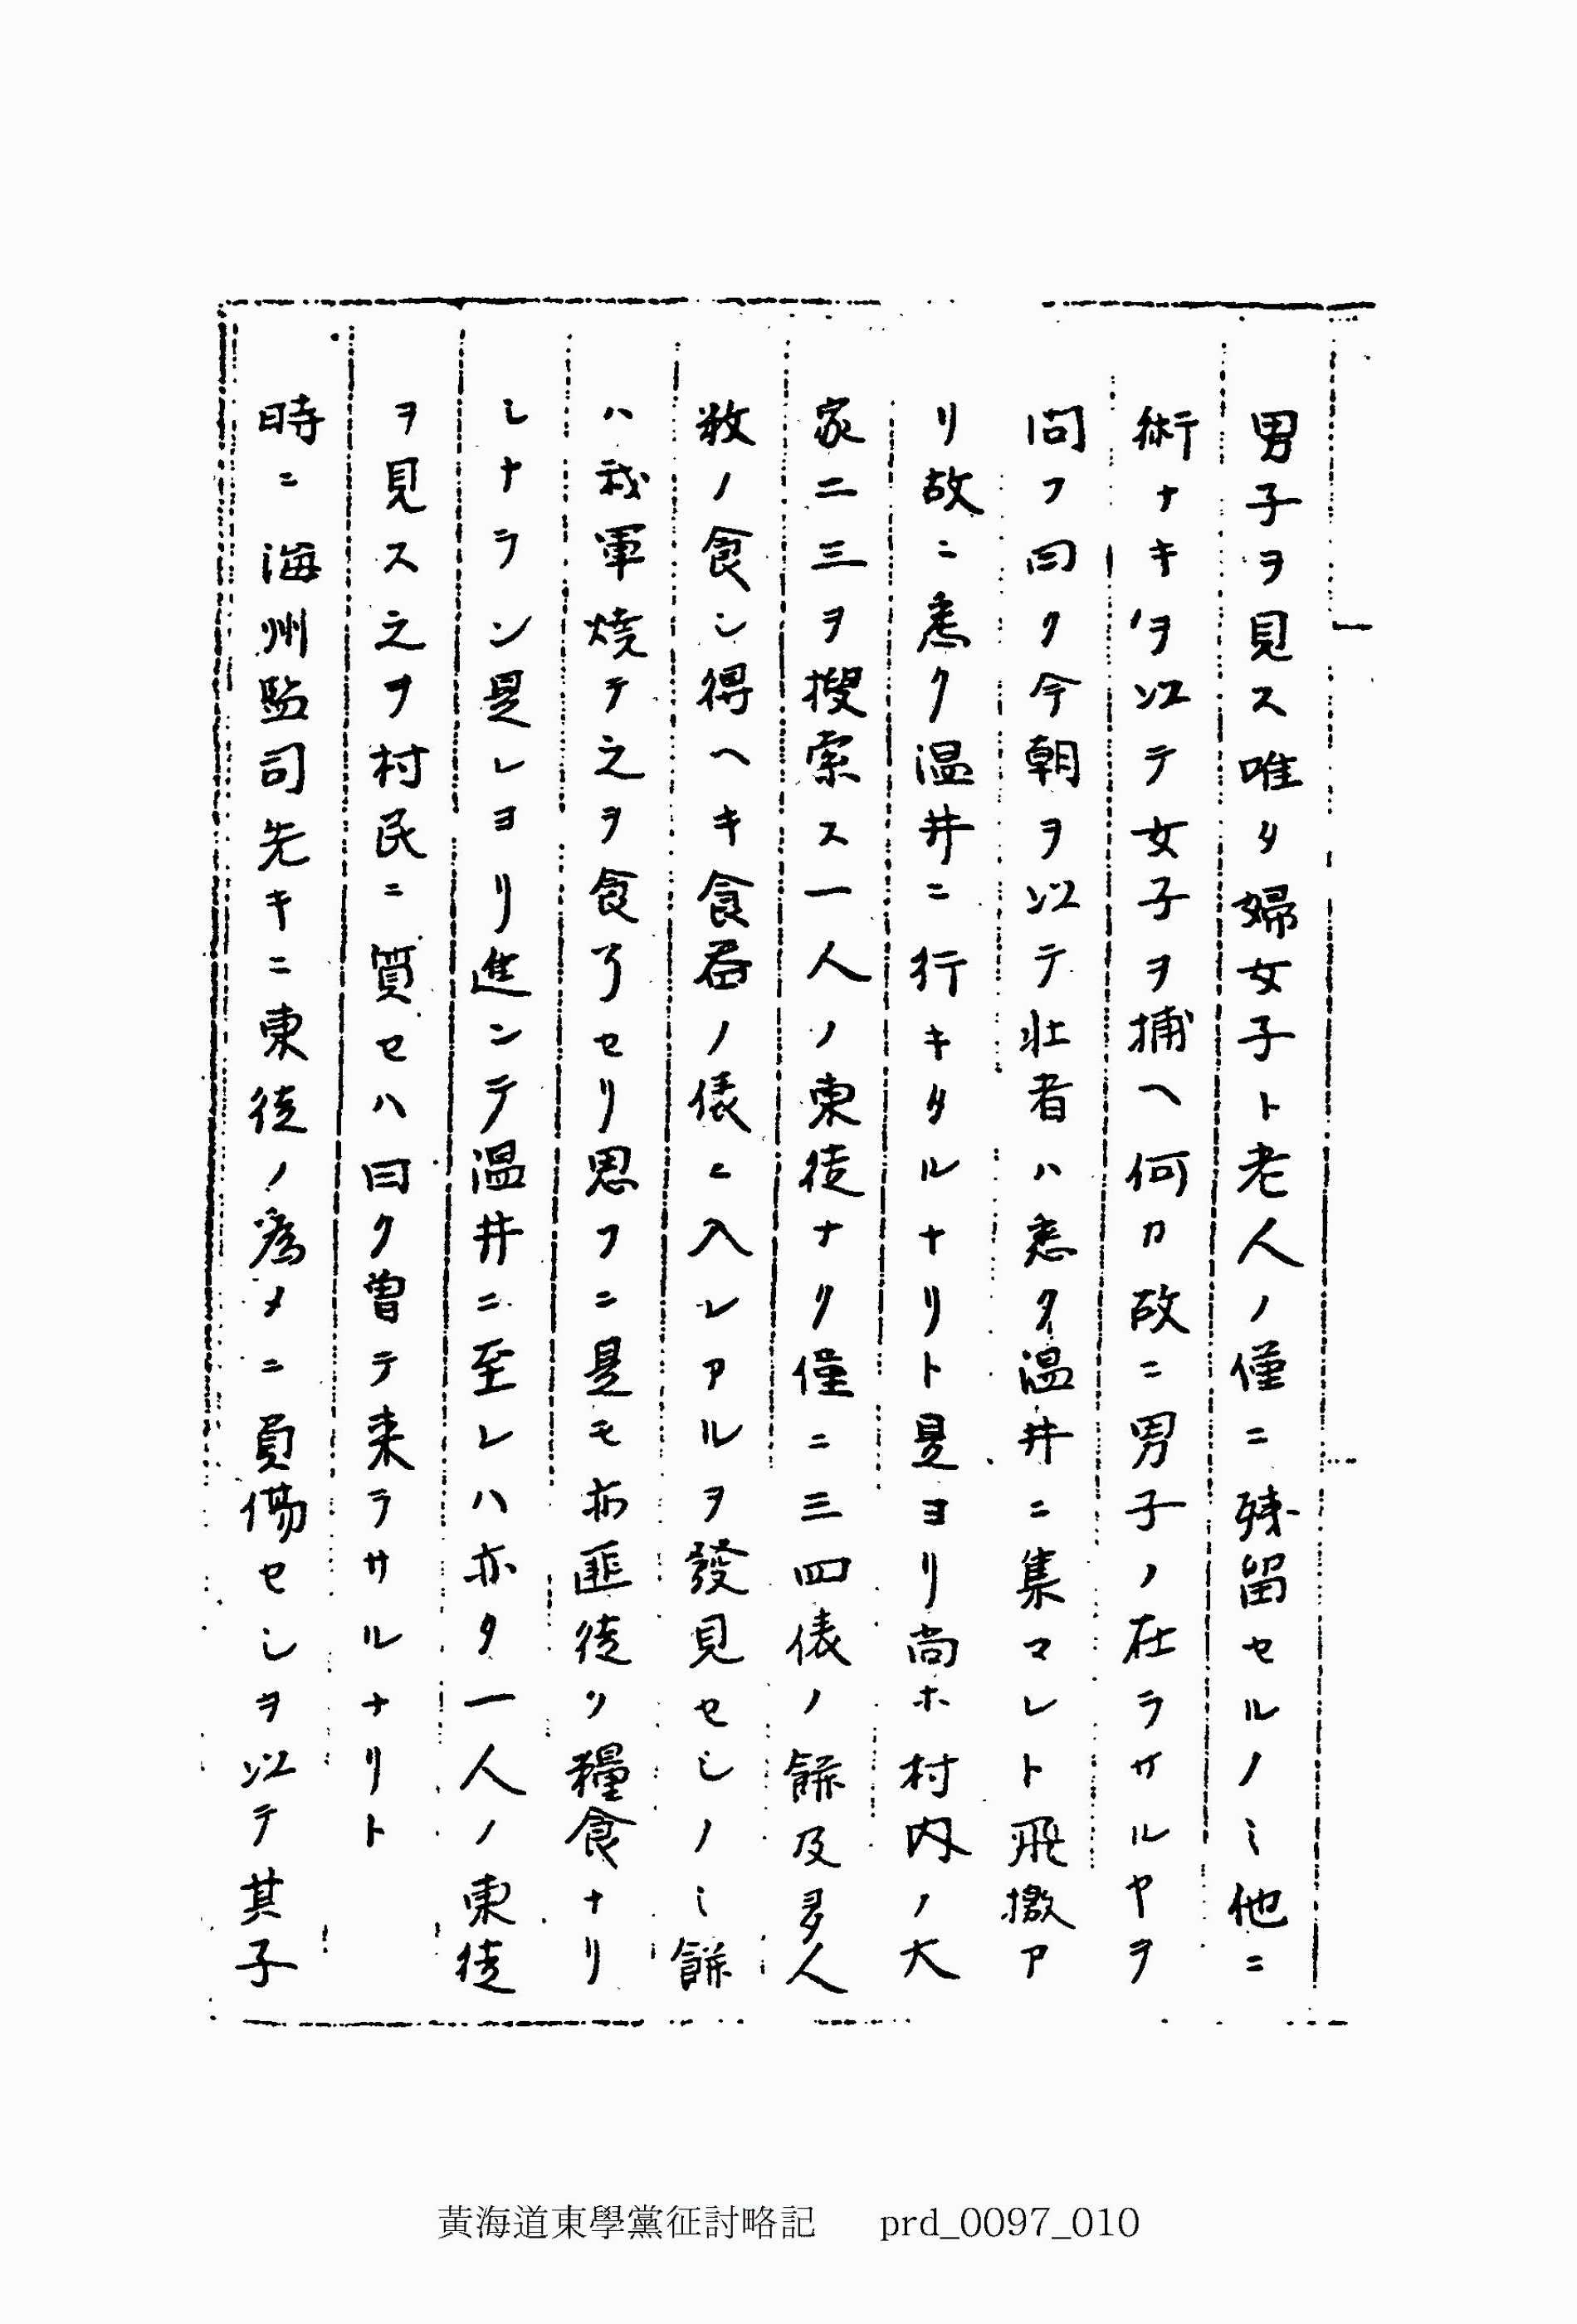 男子ヲ見ス唯タ婦女子ト老人ノ僅ニ残留セルノミ他ニ
術ナキヲ以テ女子ヲ捕ヘ何カ故ニ男子ノ在ラサルヤヲ
問フ曰ク今朝ヲ以テ壮者ハ悉ク温井ニ集マレト飛檄ア
リ故ニ悉ク温井ニ行キタルナリト是ヨリ尚ホ村内ノ大
家二三ヲ捜索ス一人ノ東徒ナク僅ニ三四俵ノ餅及多人
数ノ食シ得ヘキ食
ノ俵ニ入レアルヲ發見セシノミ餅
ハ我軍焼テ之ヲ食了セリ思フニ是モ亦匪徒ノ糧食ナリ
シナラン是レヨリ進ンテ温井ニ至レハ亦タ一人ノ東徒
ヲ見ス之ヲ村民ニ質セハ曰ク曽テ来ラサルナリト
時ニ海州監司先キニ東徒ノ為メニ負傷セシヲ以テ其子
黃海道東學黨征討略記 prd_0097_010